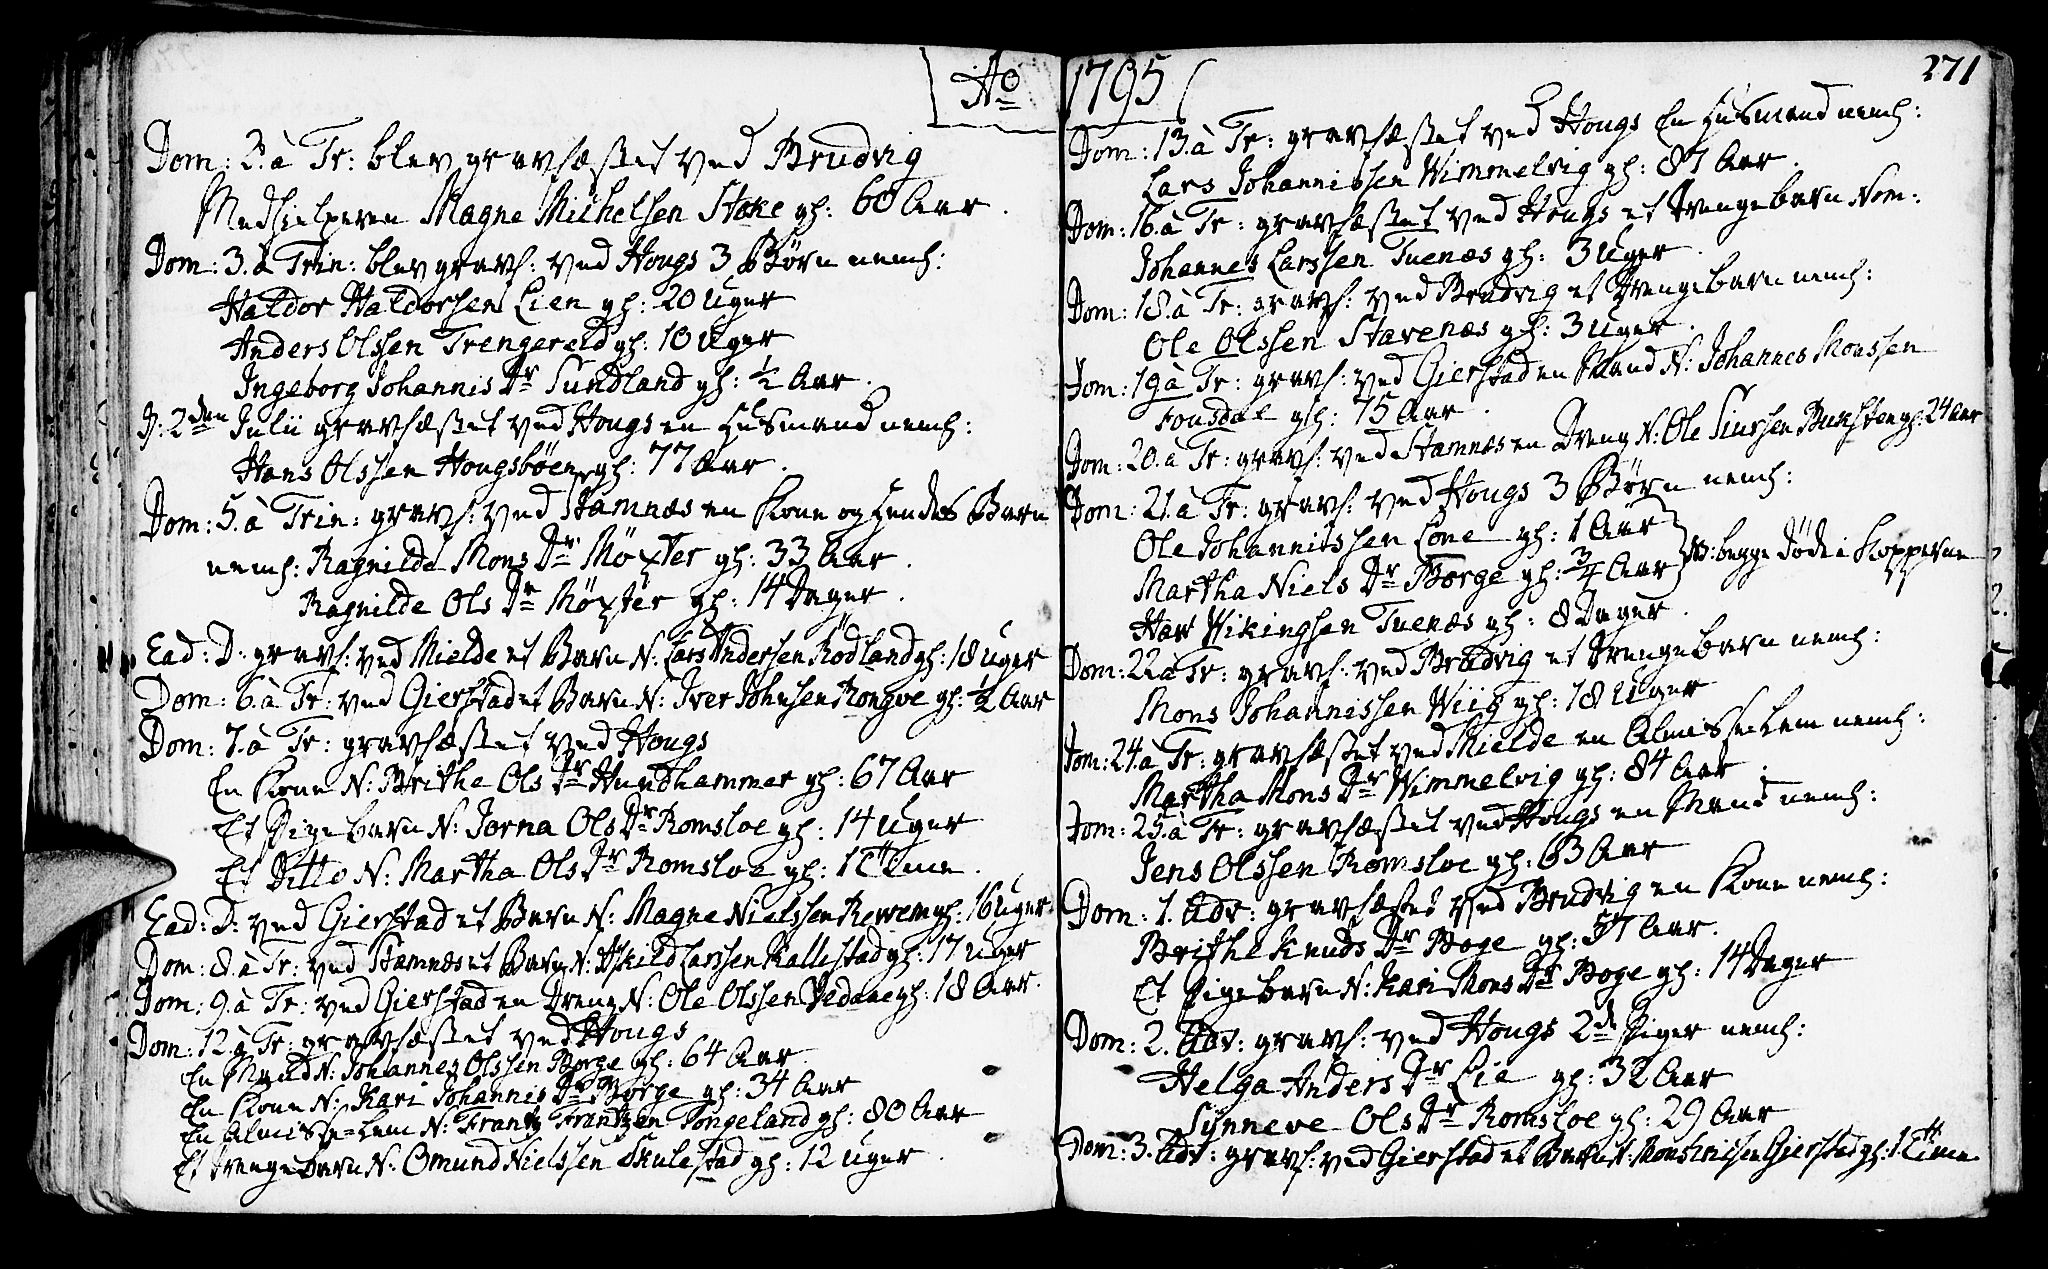 Ao 1795
271
Dom: 2. à Tr: blev gravfæstet ved Brudvig
Medhielperen Magne Michelsen Stoke gl: 60 Aar.
Dom: 3. à Trin: blev gravf: ved Hougs 3 Børn neml:
Haldor Haldorsen Lien gl: 20 Uger
Anders Olssen Trengereid gl: 10 Uger
Ingeborg Johannis Dr Sundland gl: ½ Aar.
D: 2den Julii gravfæstet ved Hougs en Husmand neml:
Hans Olssen Hougsbøen gl: 77 Aar.
Dom: 5. à Trin: gravf: ved Stamnæs en Kone og hendes Barn
neml: Ragnilde Mons Dr Møxter gl: 33 Aar.
Ragnilde Ols Dr Møxter gl: 14 Dager.
Ead: D: gravf: ved Mielde et Barn N: Lars Andersen Rødland gl: 18 Uger
Dom: 6. à Tr: ved Gierstad et Barn N: Iver Johnsen Rongve gl: ½ Aar
Dom: 7. à Tr: gravfæstet ved Hougs
En Kone N: Brithe Ols Dr Hundhammer gl: 67 Aar
Et Pigebarn N: Jorna Ols Dr Romsloe gl: 14 Uger
Et Ditto N: Martha Ols Dr Romsloe gl: 1 Time.
Ead: D: ved Gierstad et Barn N: Magne Nielssen Rewem gl: 16 Uger.
Dom: 8. à Tr: ved Stamnæs et Barn N: Askild Larssen Kallestad gl: 17 Uger
Dom: 9. à Tr: ved Gierstad en Dreng N: Ole Olssen Vedane gl: 18 Aar.
Dom: 12. à Tr: gravfæstet ved Hougs
En Mand N: Johannes Olssen Borge gl: 64 Aar.
En Kone N: Kari Johannis Dr Borge gl: 34 Aar
En Almisse=Lem N: Frantz Frantzen Tongeland gl: 80 Aar
Et Drengebarn N: Omund Nielssen Skulestad gl: 12 Uger.
Dom: 13. à Tr: gravfæstet ved Hougs En Husmand neml:
Lars Johannissen Wimmelvig gl: 87 Aar.
Dom: 16. à Tr: gravfæstet ved Hougs et Drengebarn Nom:
Johannes Larssen Tuenæs gl: 3 Uger.
Dom: 18. à Tr: gravf: ved Brudvig et Drengebarn neml:
Ole Olssen Stavenæs gl: 3 Uger.
Dom: 19 à Tr: gravf: ved Gierstad en Mand N: Johannes Monssen
Fousdal gl: 75 Aar.
Dom: 20. à Tr: gravf: ved Stamnæs en Dreng N: Ole Siursen gl: 24 Aar
Dom: 21. à Tr: gravf: ved Hougs 3 Børn neml:
Ole Johannissen Lone gl: 1 Aar
Martha Niels Dr Borge gl: ¾ Aar } NB: begge døde i Kopperne
Wikingsen Tuenæs gl: 8 Dager.
Dom: 22 à Tr: gravf: ved Brudvig et Drengebarn neml:
Mons Johannissen Wiig gl: 18 Uger
Dom: 24. à Tr: gravfæstet ved Mielde en Almisse Lem neml:
Martha Mons Dr Wimmelvig gl: 84 Aar.
Dom: 25. à Tr: gravfæstet ved Hougs en Mand neml:
Jens Olssen Romsloe gl: 63 Aar
Dom: 1. Adv: gravfæsted ved Brudvig en Kone neml:
Brithe Knuds Dr Boge gl: 57 Aar.
Et Pigebarn N: Kari Mons Dr Boge gl: 14 Dager
Dom: 2. Adv: gravf: ved Hougs 2de Piger neml:
Helga Anders Dr Lia gl: 32 Aar
Synneve Ols Dr Romsloe gl: 29 Aar
Dom: 3. Adv: gravf: ved Gierstad et Barn N: Mons Gierstad gl: 1. Time.